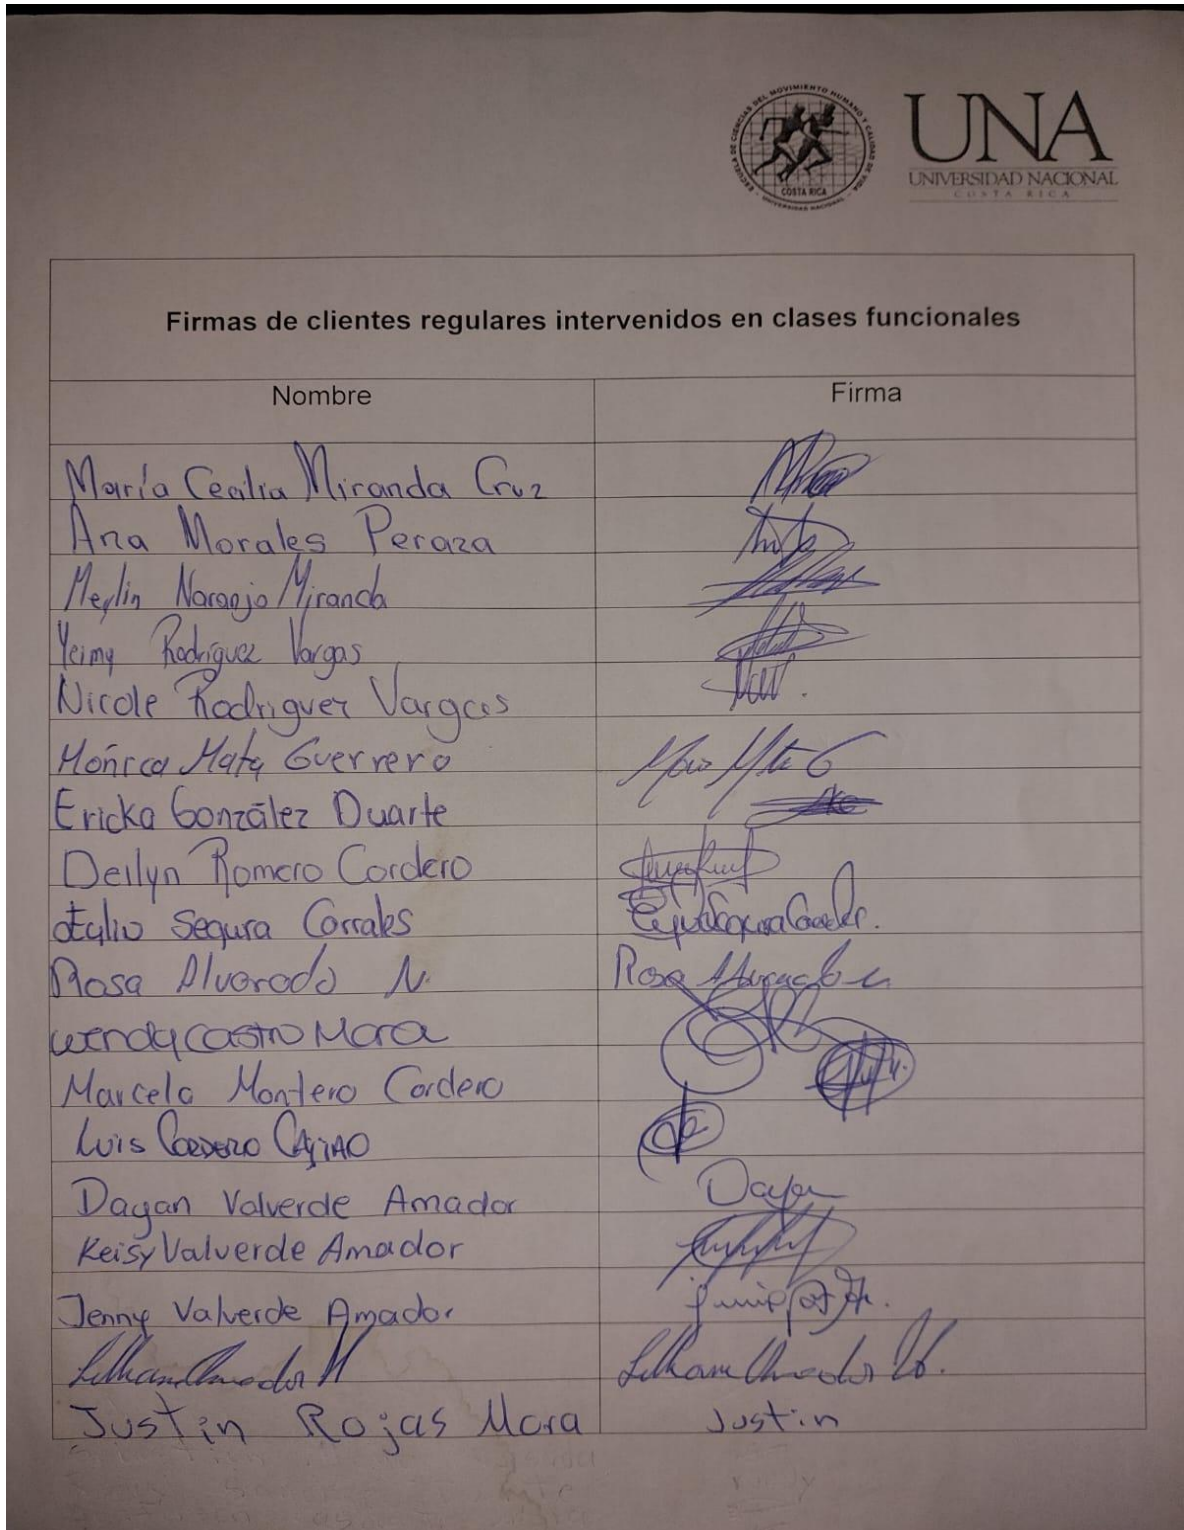 ESCUELA DE CIENCIAS DEL MOVIMIENTO HUMANO Y CALIDAD DE VIDA
COSTA RICA
UNIVERSIDAD NACIONAL
UNA
UNIVERSIDAD NACIONAL
COSTA RICA
Firmas de clientes regulares intervenidos en clases funcionales
Nombre Firma
María Cecilia Miranda Cruz
Ana Morales Peraza
Meylin Naranjo Miranda
Yeimy Rodríguez Vargas
Nicole Rodriguez Vargas
Mónica Mata Guerrero
Ericka González Duarte
Deilyn Romero Cordero
Segura Corrales
Rosa Alvarado N. Rosa Alvarado
Wendy Castro Mora
Marcela Montero Cordero
Luis Cordero
Dayan Valverde Amador Dayan
Keisy Valverde Amador
Jenny Valverde Amador
Lilliam Amador Lilliam Amador
Justin Rojas Mora Justin